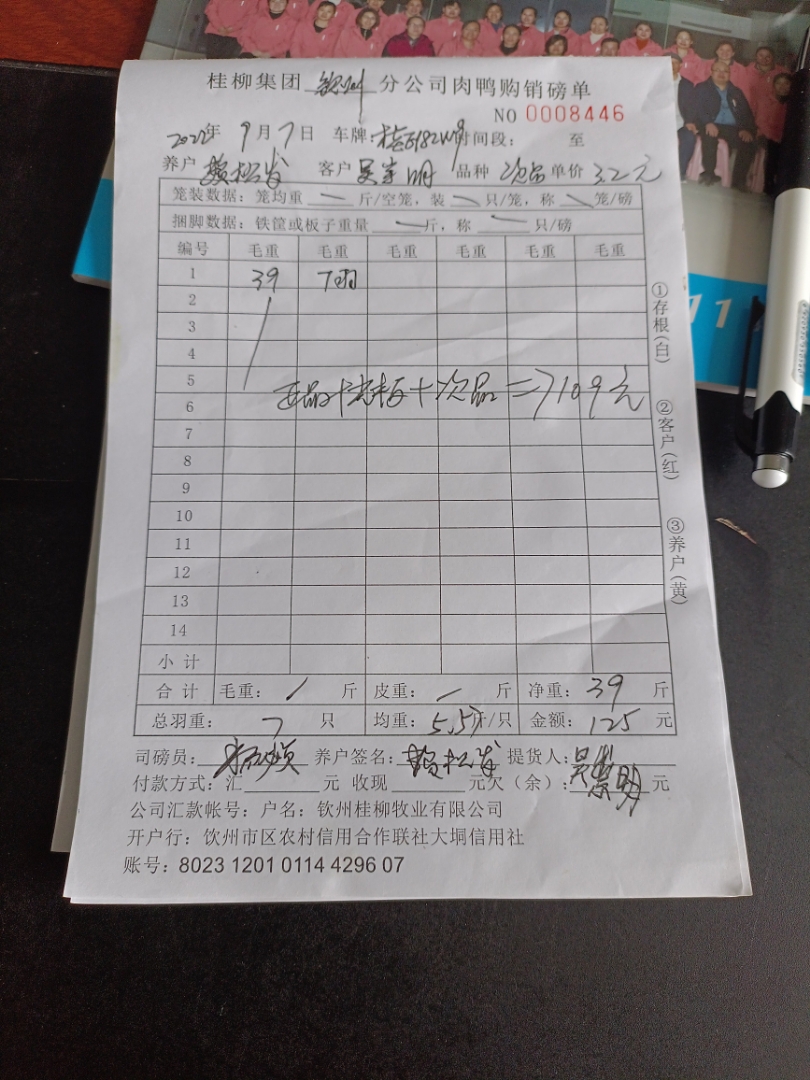 桂柳集团 钦州 分公司肉鸭购销磅单
NO 0008446
2022年 9月7日 车牌: 时间段: 至
养户 客户 吴崇明 品种 次品 单价 3.2元
笼装数据: 笼均重 一 斤/空笼, 装 一 只/笼, 称 一 笼/磅
捆脚数据: 铁筐或板子重量 一 斤, 称 一 只/磅
编号 毛重 毛重 毛重 毛重 毛重 毛重
1 39 7羽
2
3
4
5
正品+老板+次品=7109元
6
7
8
9
10
11
12
13
14
小计
合计 毛重: / 斤 皮重: 一 斤 净重: 39 斤
总羽重: 7 只 均重: 5.5斤/只 金额: 125 元
司磅员: 养户签名: 提货人: 吴崇明
付款方式: 汇 元 收现 元欠(余): 元
公司汇款帐号: 户名: 钦州桂柳牧业有限公司
开户行: 饮州市区农村信用合作联社大垌信用社
账号: 8023 1201 0114 4296 07
①存根(白)
②客户(红)
③养户(黄)
11